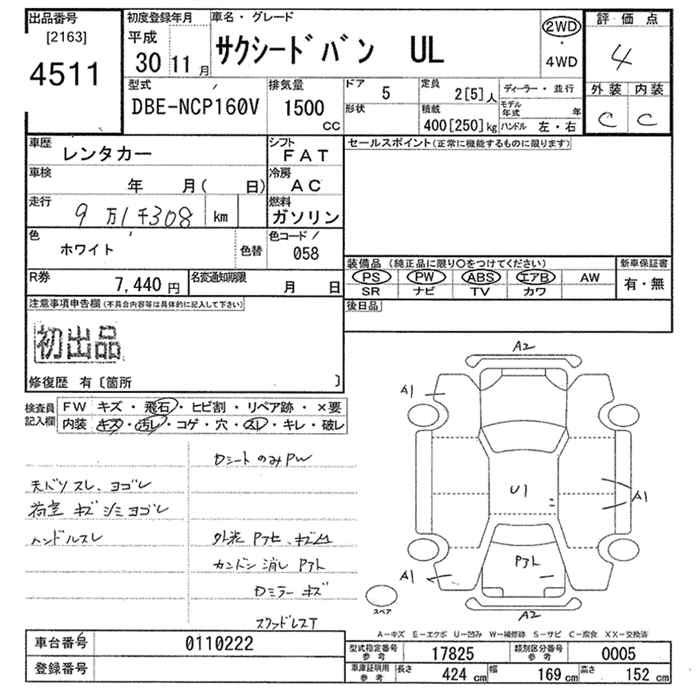 出品番号
[2163]
4511
初度登録年月
平成
30 11 月
車名・グレード
サクシードバン UL
2WD
・
4WD
評価点
4
外装 内装
C C
型式
DBE-NCP160V
排気量
1500
CC
ドア
5
形状
定員
2[5]人
積載
400[250]kg
ディーラー・並行
モデル年式 年
ハンドル 左・右
車歴
レンタカー
シフト
FAT
車検
年 月( 日)
冷房
AC
走行
9万1千308 km
燃料
ガソリン
色
ホワイト
色替
色コード/
058
R券
7,440 円
名変通知期限
月 日
セールスポイント(正常に機能するものに限ります)
装備品 (純正品に限り○をつけてください)
PS PW ABS エアB AW
SR ナビ TV カワ
新車保証書
有・無
後日品
注意事項申告欄(不具合内容等は具体的に記入して下さい)
初出品
修復歴 有〔箇所 〕
検査員記入欄
FW キズ・飛石・ヒビ割・リペア跡・×要
内装 キズ・汚レ・コゲ・穴・スレ・キレ・破レ
DシートのみPW
天バリスレ、ヨゴレ
荷室 キズ シミ ヨゴレ
ハンドルスレ
カンバン消し Pアト
Dミラーキズ
スペアレスT
A2
A1
A1
U1
A1
Pアト
A1
A2
スペア
A-キズ E-エクボ U-凹み W-補修跡 S-サビ C-腐食 XX-交換済
車台番号
0110222
登録番号
型式指定番号
参考
17825
類別区分番号
参考
0005
車庫証明用
参考
長さ
424 cm
幅
169 cm
高さ
152 cm